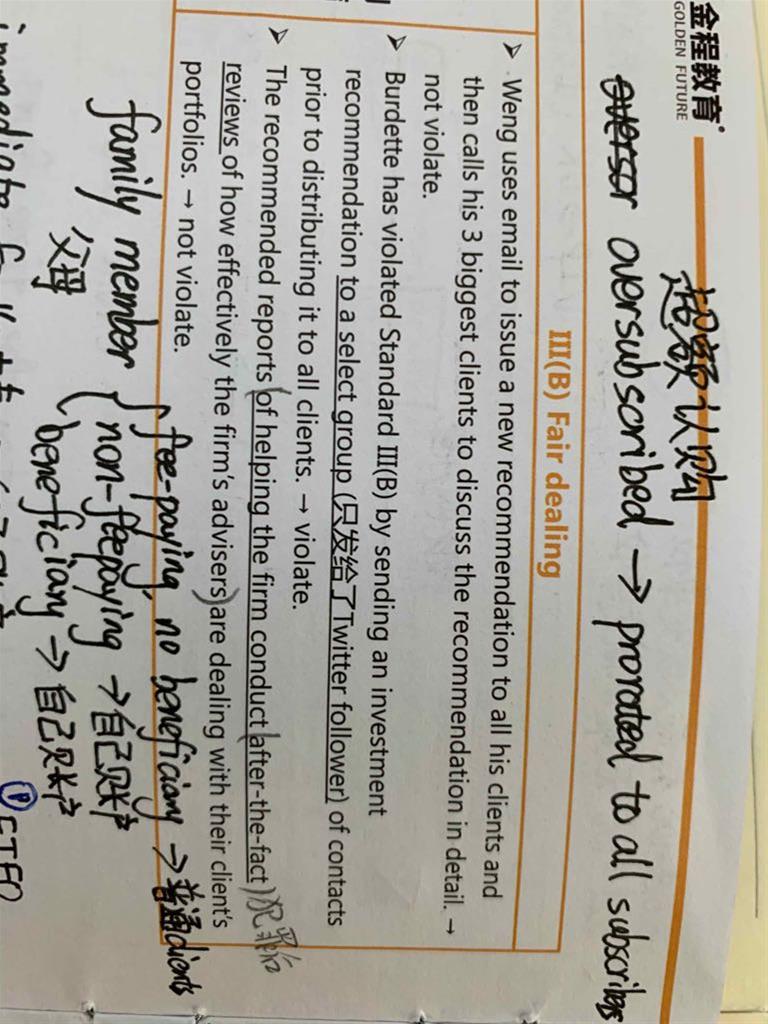 金程教育
GOLDEN FUTURE
超额认购
oversubscribed → prorated to all subscribers
III(B) Fair dealing
➢ Weng uses email to issue a new recommendation to all his clients and
then calls his 3 biggest clients to discuss the recommendation in detail. →
not violate.
➢ Burdette has violated Standard III(B) by sending an investment
recommendation to a select group (只发给了Twitter follower) of contacts
prior to distributing it to all clients. → violate.
➢ The recommended reports (of helping the firm conduct (after-the-fact)
reviews of how effectively the firm's advisers) are dealing with their client's
portfolios. → not violate.
family member { fee-paying, no beneficiary → 普通clients
父母
non-feepaying → 自己账户
beneficiary → 自己账户
immediate